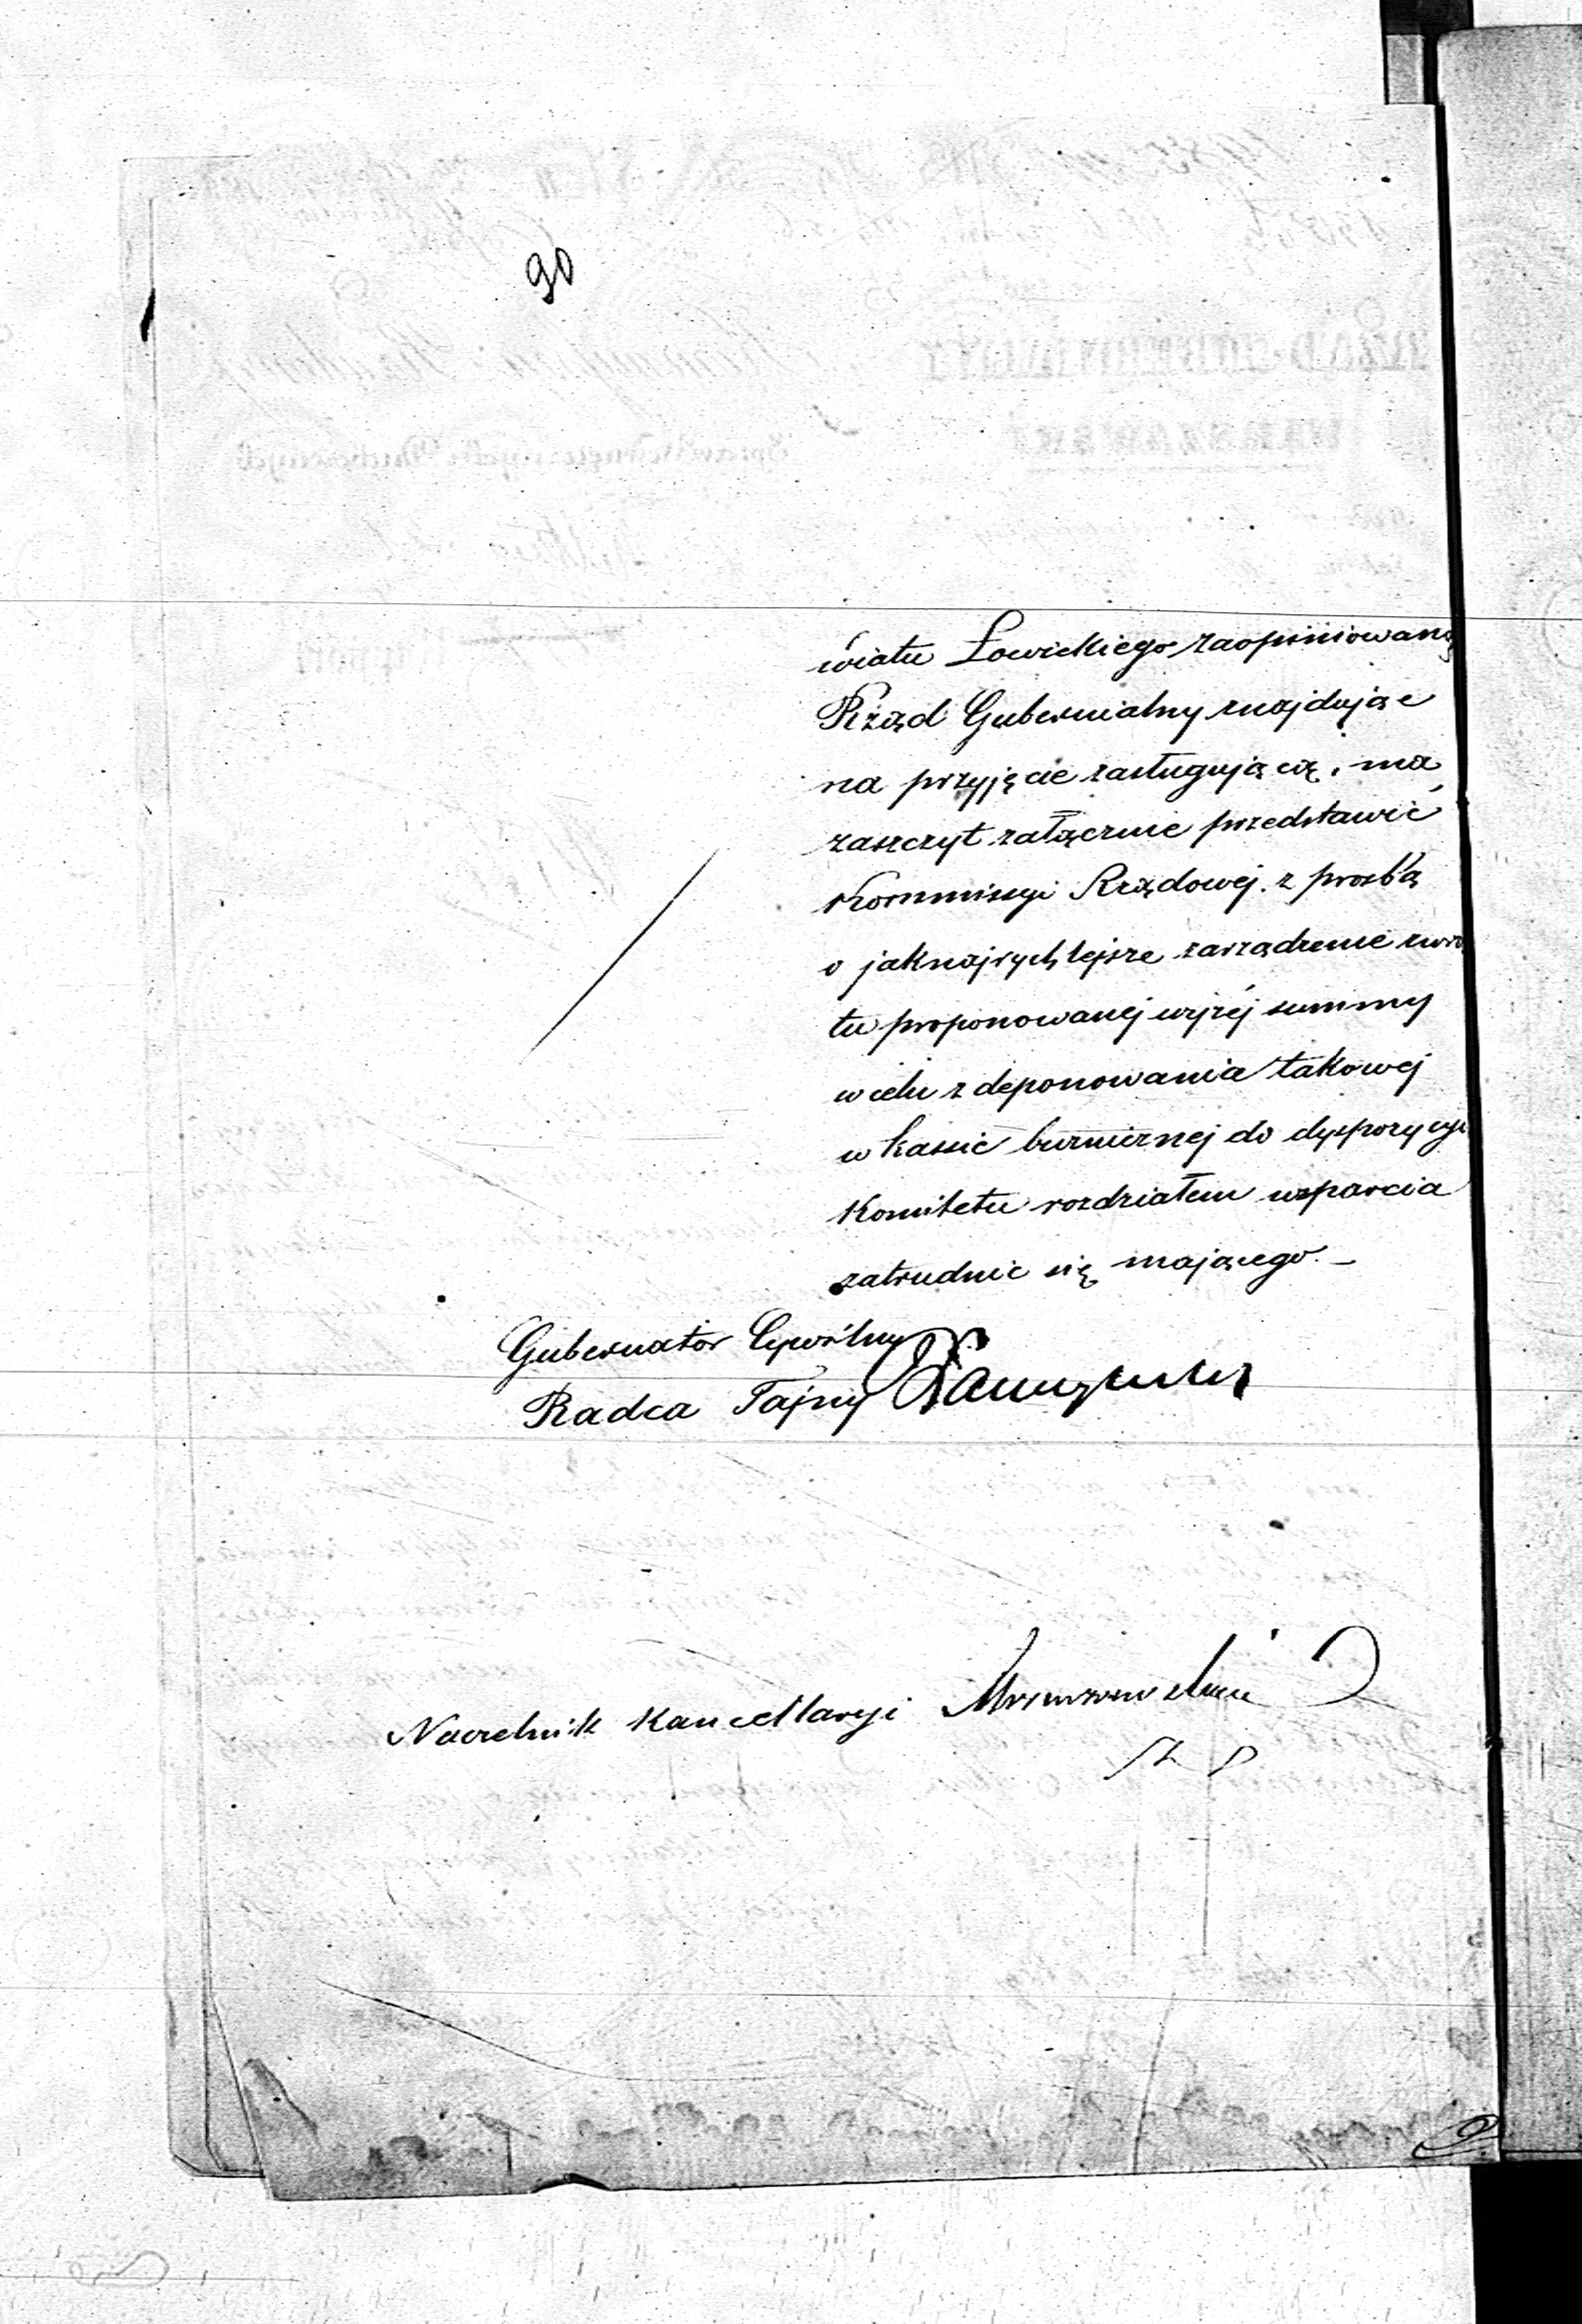 90
wiatu Łowickiego zaopiniowaną
Rząd Gubernialny znajdując
na przyjęcie zasługującą, ma
zaszczyt załącznie przedstawić
Kommissyi Rządowej z prośbą
o jaknajrychlejsze zarządzenie zwro
tu proponowanej wyżej summy
w celu zdeponowania takowej
w kassie buźniczej do dyspozycyi
Komitetu rozdziałem wsparcia
zatrudnić się mającego. –
Gubernator Cywilny
Radca Tajny
Naczelnik Kancellaryi